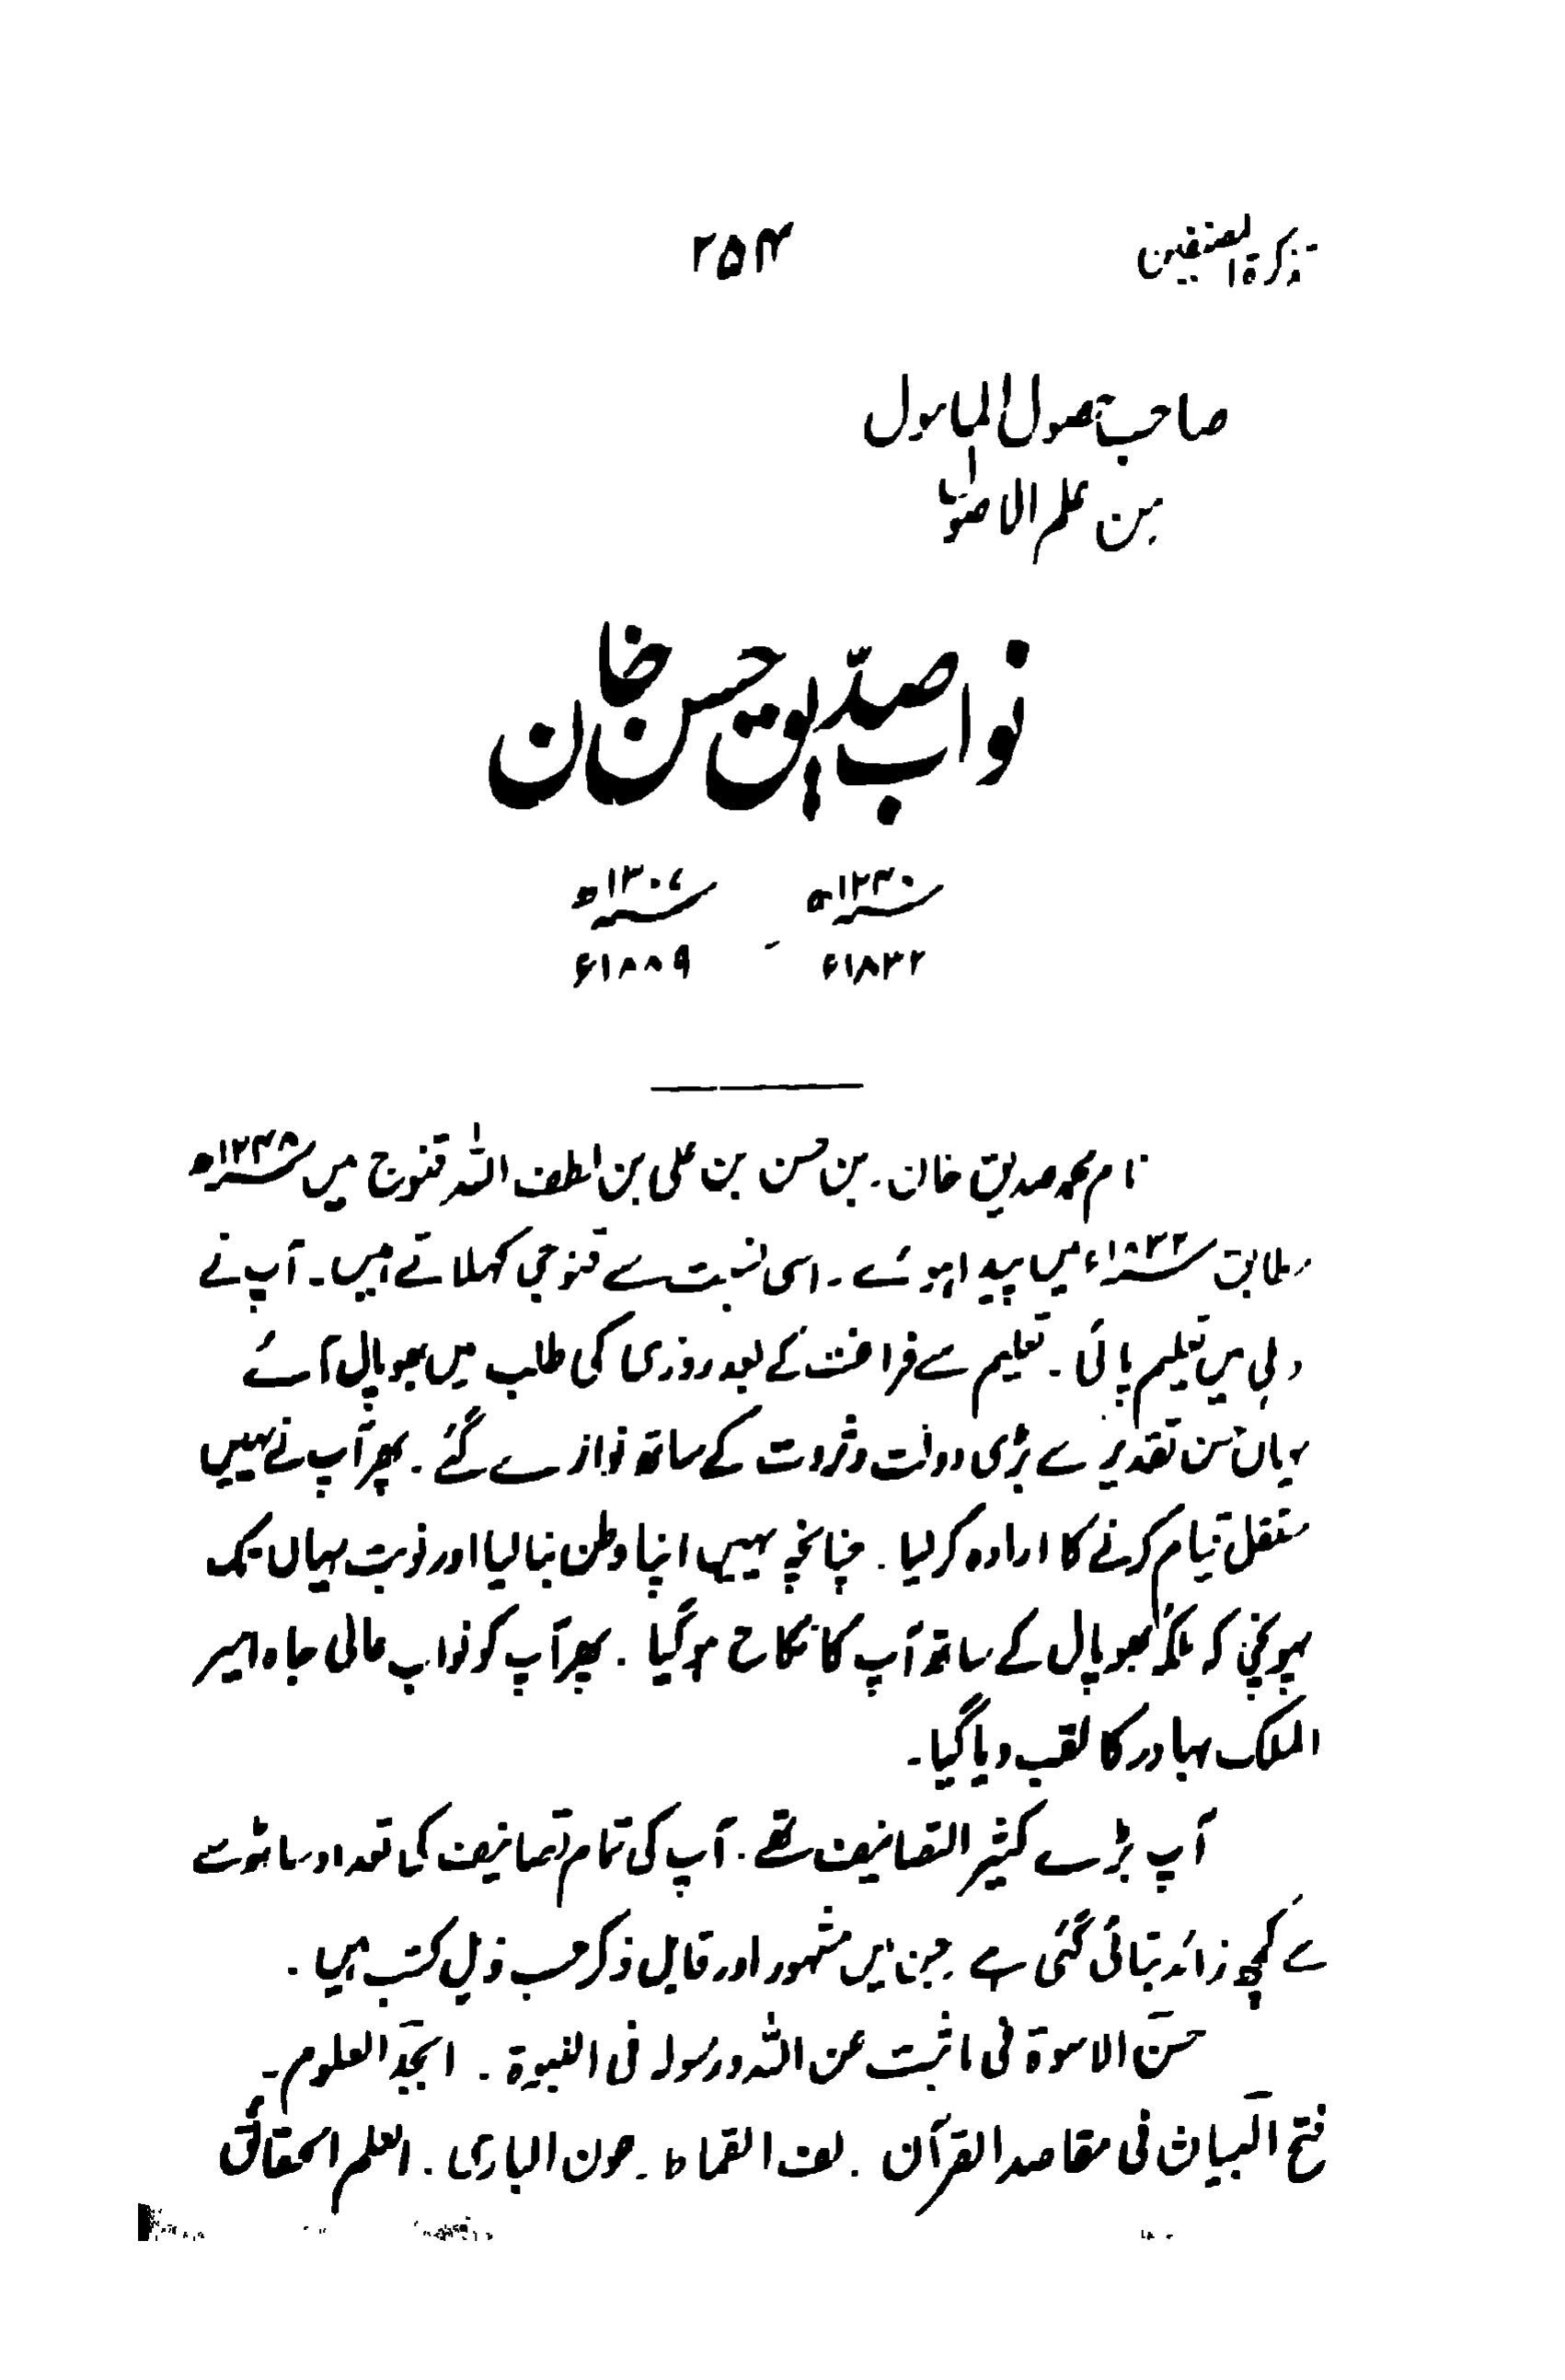 تذکرۃ المصنفین ۲۵۴
صاحب حصول المامول
من علم الاصول
نواب صدّیق حسن خان
۱۲۴۰ھ ۱۳۰۷ھ
۱۸۳۲ء - ۱۸۸۹ء
نام محمد صدیق خان۔ بن حسن بن علی بن لطف اللہ قنوج میں ۱۲۴۸ھ
مطابق ۱۸۳۲ء میں پیدا ہوئے۔ اسی نسبت سے قنوجی کہلاتے ہیں۔ آپ نے
دہلی میں تعلیم پائی۔ تعلیم سے فراغت کے بعد روزی کی طلب میں بھوپال آئے
یہاں حسن تقدیر سے بڑی دولت و ثروت کے ساتھ نوازے گئے۔ پھر آپ نے یہیں
مستقل قیام کرنے کا ارادہ کر لیا۔ چنانچہ یہیں اپنا وطن بنا لیا اور نوبت یہاں تک
پہونچی کہ ملکۂ بھوپال کے ساتھ آپ کا نکاح ہو گیا۔ پھر آپ کو نواب عالی جاہ امیر
الملک بہادر کا لقب دیا گیا۔
آپ بڑے کثیر التصانیف تھے۔ آپ کی تمام تصانیف کی تعداد ساٹھ سے
سے کچھ زائد بتائی گئی ہے جن میں مشہور اور قابل ذکر حسب ذیل کتب ہیں۔
حسن الاسوۃ فی ما ثبت عن اللہ و رسولہ فی النبوۃ۔ ابجد العلوم۔
فتح البیان فی مقاصد القرآن۔ لف القماط۔ عون الباری۔ العلم الخفاق